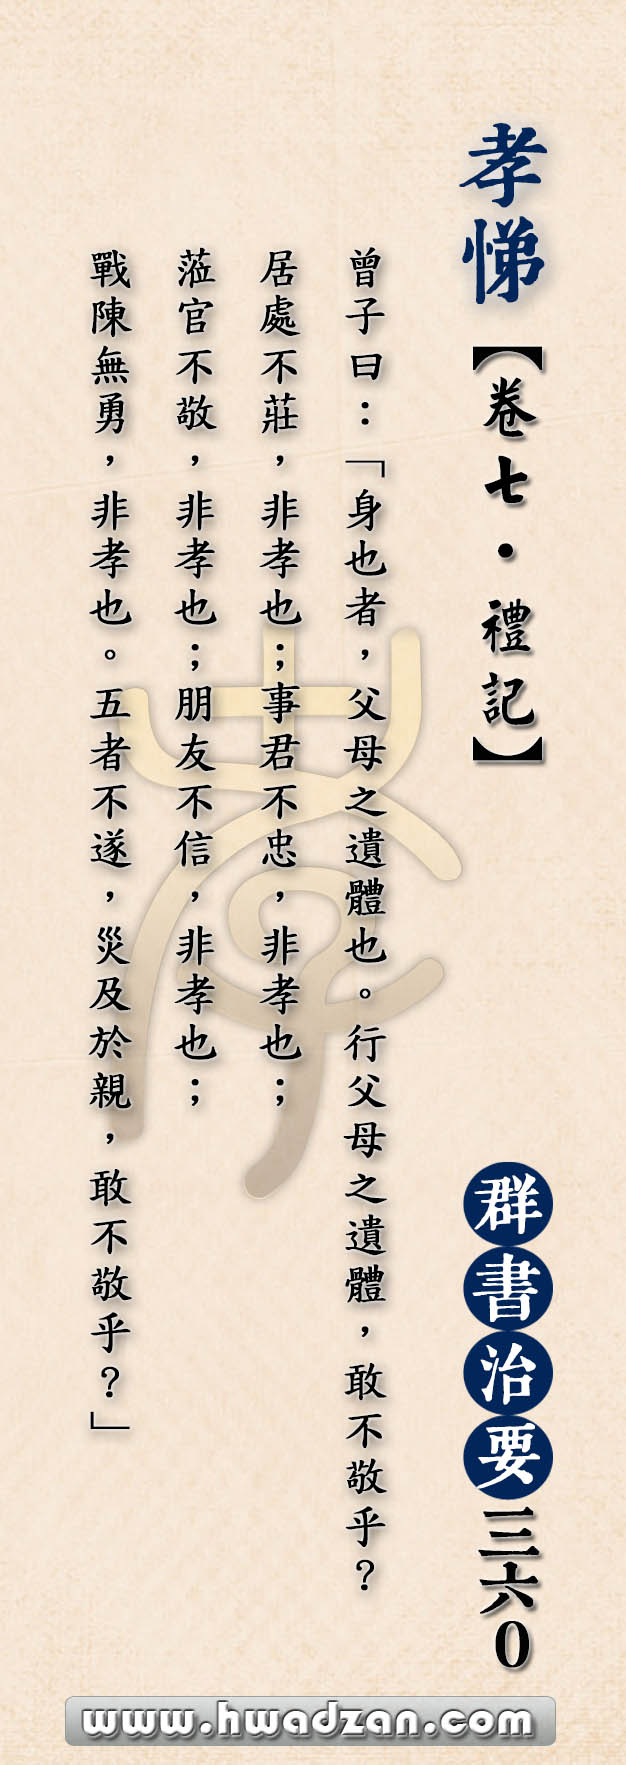 孝悌【卷七・禮記】
群書治要三六0
曾子曰：「身也者，父母之遺體也。行父母之遺體，敢不敬乎？
居處不莊，非孝也；事君不忠，非孝也；
蒞官不敬，非孝也；朋友不信，非孝也；
戰陳無勇，非孝也。五者不遂，災及於親，敢不敬乎？」
www.hwadzan.com